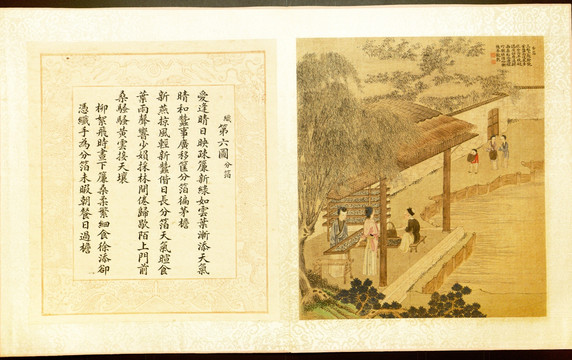 織 第六圖 分箔
愛逢晴日映疎簾新綠如雲葉漸添天氣
晴和蠶事廣移筐分箔徧茅檐
新燕掠風輕新蠶偕日長分箔天氣暄食
葉雨聲響少娟採林間倦歸歇陌上門前
桑騷騷黃雲接天壤
柳絮飛時晝下簾桑柔繁細食徐添卻
憑纖手為分箔未暇朝餐日過檐